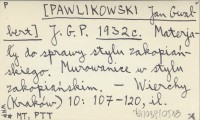 P
[PAWLIKOWSKI Jan Gwal-
bert] J. G. P. 1932c. Materja-
ły do sprawy stylu zakopiań-
skiego. Murowanice w stylu
zakopiańskim. — Wierchy
(Kraków) 10: 107-120, il.
** MT, PTT